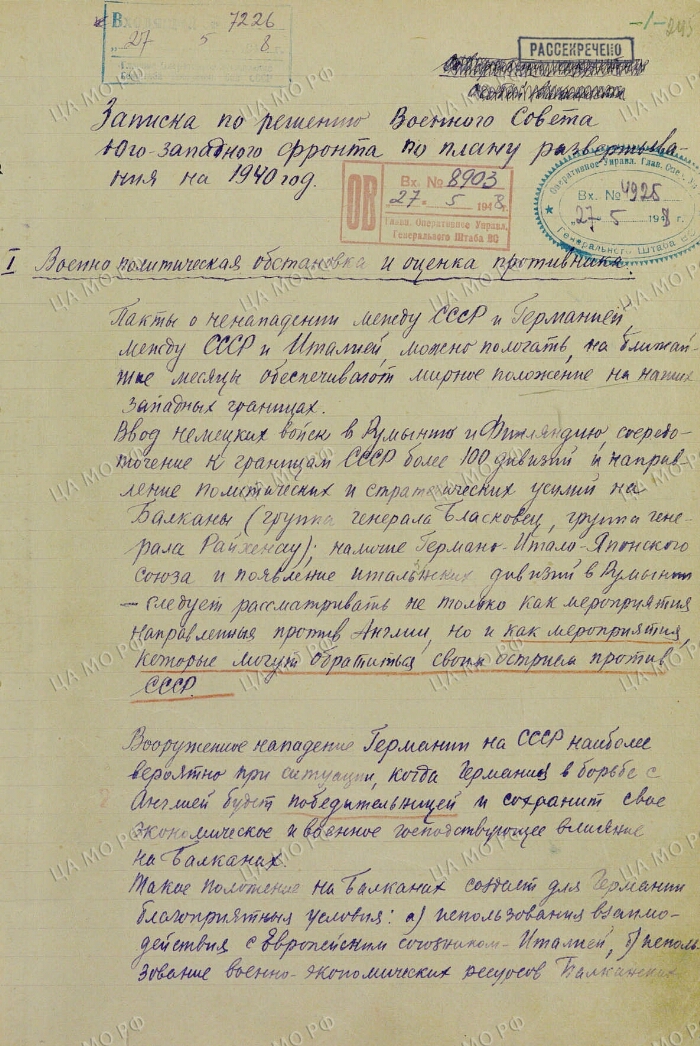 Входящий № 7226
"27" 5 8 г.
-1- 243
РАССЕКРЕЧЕНО
Записка по решению Военного Совета
Юго-западного фронта по плану развертыва-
ния на 1940 год.
ОВ
Вх. № 8903
27. 5 1948 г.
Главн. Оперативное Управл.
Генерального Штаба ВС
Оперативное Управл. Глав.
Вх. № 4925
"27" 5 1948 г.
Генерального Штаба ВС
I Военно политическая обстановка и оценка противника.
Пакты о ненападении между СССР и Германией,
между СССР и Италией, можно пологать, на ближай-
шие месяцы обеспечивают мирное положение на наших
западных границах.
Ввод немецких войск в Румынию и Финляндию, сосредо-
точение к границам СССР более 100 дивизий и направ-
ление политических и стратегических усилий на
Балканы (группа генерала Бласковец, группа гене-
рала Райхенау); наличие Германо-Итало-Японского
союза и появление итальянских дивизий в Румынии
— следует рассматривать не только как мероприятия
направленные против Англии, но и как мероприятия,
которые могут обратиться своим острием против
СССР.
Вооруженное нападение Германии на СССР наиболее
вероятно при ситуации, когда Германия в борьбе с
Англией будет победительницей и сохранит свое
экономическое и военное господствующее влияние
на Балканах.
Такое положение на Балканах создает для Германии
благоприятныя условия: а) использования взаимо-
действия с Европейским союзником-Италией, б) исполь-
зование военно-экономических ресурсов Балканских
ЦА МО РФ